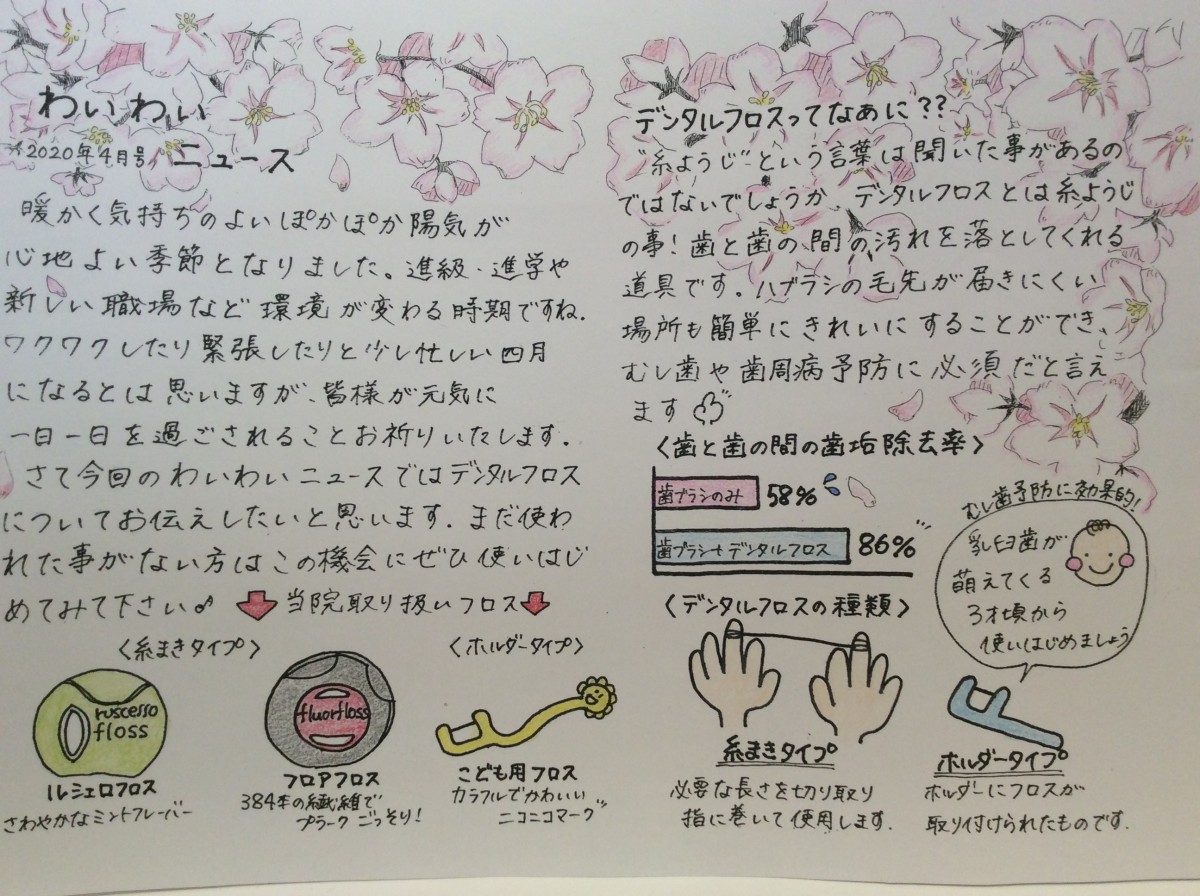 わいわい
2020年4月号 ニュース
暖かく気持ちのよいぽかぽか陽気が
心地よい季節となりました。進級・進学や
新しい職場など環境が変わる時期ですね.
ワクワクしたり緊張したりと少し忙しい四月
になるとは思いますが、皆様が元気に
一日一日を過ごされることお祈りいたします.
さて今回のわいわいニュースではデンタルフロス
についてお伝えしたいと思います. まだ使わ
れた事がない方はこの機会にぜひ使いはじ
めてみて下さい♪ 当院取り扱いフロス
〈糸まきタイプ〉
〈ホルダータイプ〉
ruscello
floss
ルシェロフロス
さわやかなミントフレーバー
fluorfloss
フロアフロス
384本の繊維で
プラークごっそり!
こども用フロス
カラフルでかわいい
ニコニコマーク
デンタルフロスってなぁに??
"糸ようじ"という言葉は聞いた事があるの
ではないでしょうか、デンタルフロスとは糸ようじ
の事!歯と歯の間の汚れを落としてくれる
道具です. ハブラシの毛先が届きにくい
場所も簡単にきれいにすることができ、
むし歯や歯周病予防に必須だと言え
ます
〈歯と歯の間の歯垢除去率〉
歯ブラシのみ 58%
歯ブラシ+デンタルフロス 86%
むし歯予防に効果的!
乳臼歯が
萌えてくる
3才頃から
使いはじめましょう
〈デンタルフロスの種類〉
糸まきタイプ
必要な長さを切り取り
指に巻いて使用します.
ホルダータイプ
ホルダーにフロスが
取り付けられたものです.